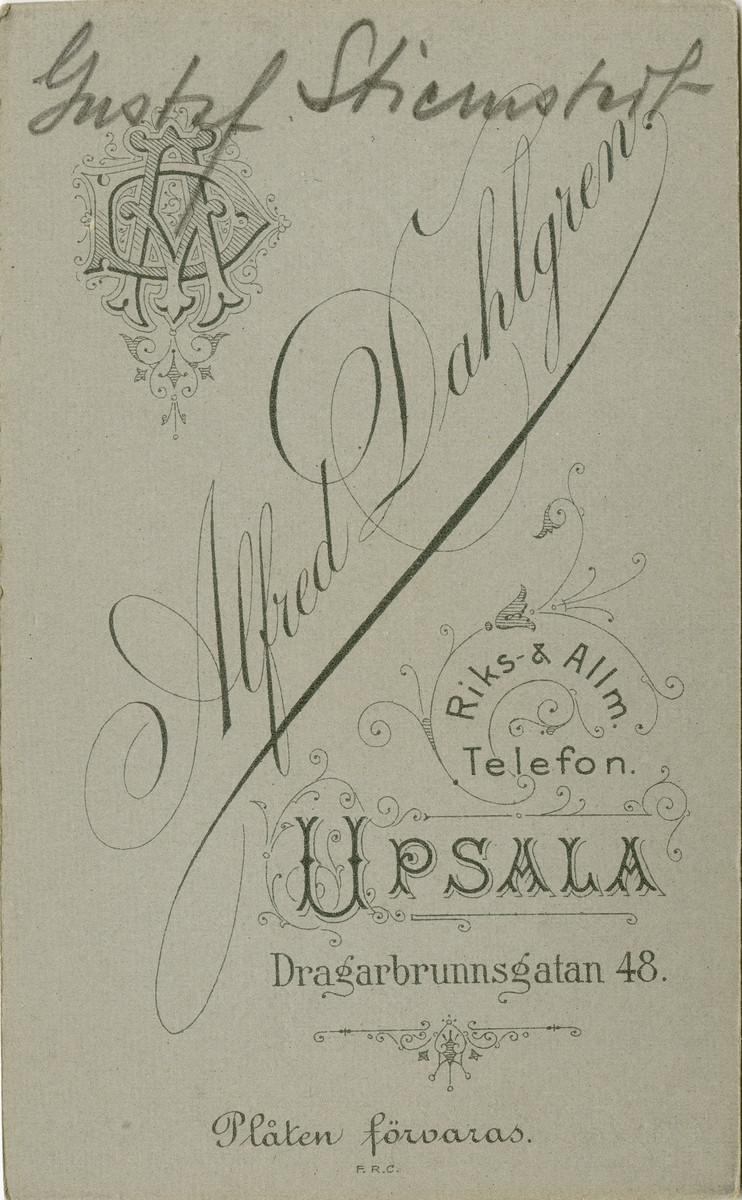 Gustaf Stiernstedt
AD
Alfred Dahlgren.
Riks- & Allm.
Telefon.
UPSALA
Dragarbrunnsgatan 48.
Plåten förvaras.
F.R.C.